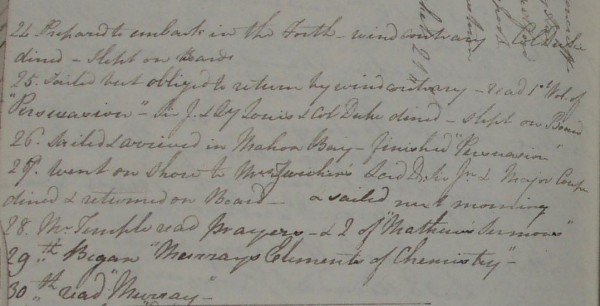 24. Prepared to embark in the Forth - wind contrary Col Duke
dined - slept on Board
25. Sailed but obliged to return by wind contrary - read 1st Vol. of
"Persuasion" - Sir J. & Ly Louis & Col Duke dined - slept on Board
26. Sailed & arrived in Mahon Bay - finished "Persuasion"
27. went on shore to Mrs Lord D, Sir Jn & Major Coupe
dined & returned on Board - & sailed next morning
28. Mr Temple read prayers - & 2 of "Mathews Sermons"
29.th Began "Murrays Elements of Chemistry" -
30th read "Murray" -